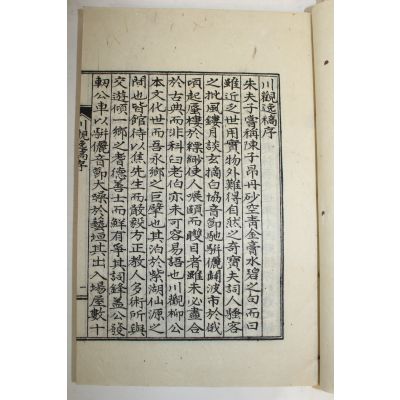 川觀逸稿序
朱夫子嘗稱陳子昂丹砂空靑金膏水碧之句而曰
雖近乏世用實物外難得自然之奇寶夫詞人騷客
之批風鏤月談玄摘白協音節馳騈儷闢波市於俄
頃起蜃樓於縹緲使人展頤而聳目者雖未必盡合
於古典而非科臼老伯亦未可容易語也川觀柳公
本文化世而吾永鄕之巨擘也其泊於紫湖仙源之
間也皆館待以焦先生而嚴毅方正敎人多術所與
交遊傾一鄕之耆德善士而鮮有爭其詞鋒盖公發
軔公車以騈儷音節大噪於藝垣其出入場屋數十
川觀逸稿序 一